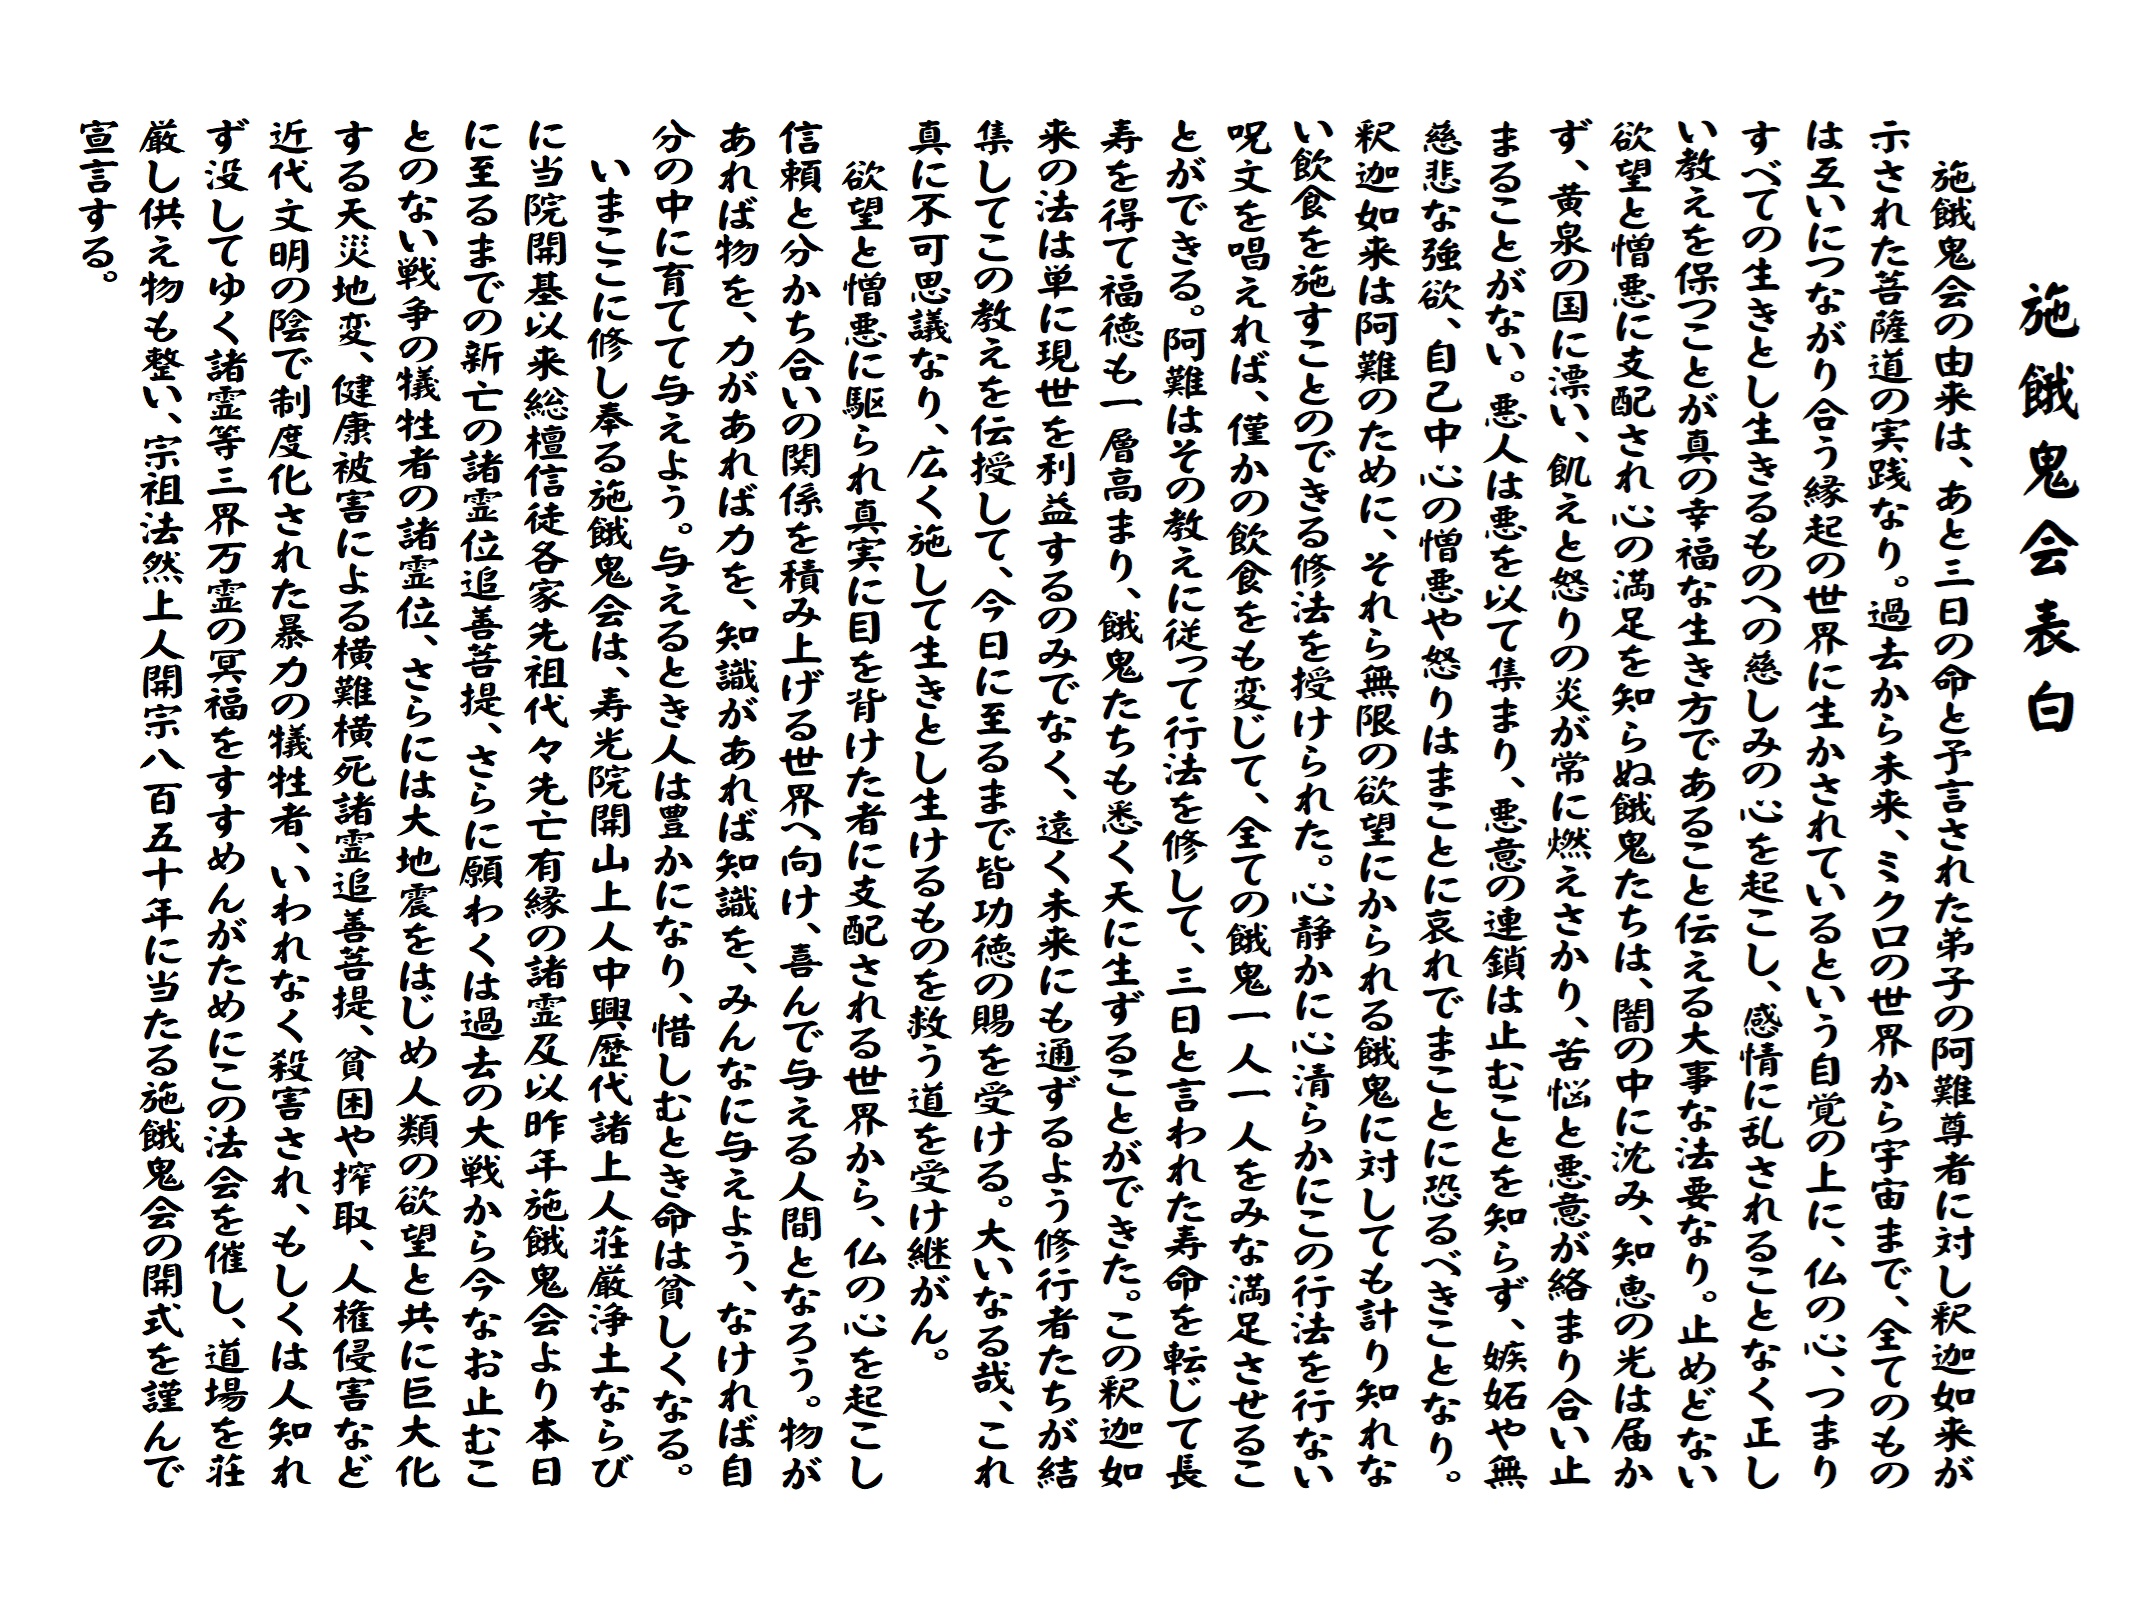 施餓鬼会表白
施餓鬼会の由来は、あと三日の命と予言された弟子の阿難尊者に対し釈迦如来が
示された菩薩道の実践なり。過去から未来、ミクロの世界から宇宙まで、全てのもの
は互いにつながり合う縁起の世界に生かされているという自覚の上に、仏の心、つまり
すべての生きとし生きるものへの慈しみの心を起こし、感情に乱されることなく正し
い教えを保つことが真の幸福な生き方であること伝える大事な法要なり。止めどない
欲望と憎悪に支配され心の満足を知らぬ餓鬼たちは、闇の中に沈み、知恵の光は届か
ず、黄泉の国に漂い、飢えと怒りの炎が常に燃えさかり、苦悩と悪意が絡まり合い止
まることがない。悪人は悪を以て集まり、悪意の連鎖は止むことを知らず、嫉妬や無
慈悲な強欲、自己中心の憎悪や怒りはまことに哀れでまことに恐るべきことなり。
釈迦如来は阿難のために、それら無限の欲望にかられる餓鬼に対しても計り知れな
い飲食を施すことのできる修法を授けられた。心静かに心清らかにこの行法を行ない
呪文を唱えれば、僅かの飲食をも変じて、全ての餓鬼一人一人をみな満足させるこ
とができる。阿難はその教えに従って行法を修して、三日と言われた寿命を転じて長
寿を得て福徳も一層高まり、餓鬼たちも悉く天に生ずることができた。この釈迦如
来の法は単に現世を利益するのみでなく、遠く未来にも通ずるよう修行者たちが結
集してこの教えを伝授して、今日に至るまで皆功徳の賜を受ける。大いなる哉、これ
真に不可思議なり、広く施して生きとし生けるものを救う道を受け継がん。
欲望と憎悪に駆られ真実に目を背けた者に支配される世界から、仏の心を起こし
信頼と分かち合いの関係を積み上げる世界へ向け、喜んで与える人間となろう。物が
あれば物を、力があれば力を、知識があれば知識を、みんなに与えよう、なければ自
分の中に育てて与えよう。与えるとき人は豊かになり、惜しむとき命は貧しくなる。
いまここに修し奉る施餓鬼会は、寿光院開山上人中興歴代諸上人荘厳浄土ならび
に当院開基以来総檀信徒各家先祖代々先亡有縁の諸霊及以昨年施餓鬼会より本日
に至るまでの新亡の諸霊位追善菩提、さらに願わくは過去の大戦から今なお止むこ
とのない戦争の犠牲者の諸霊位、さらには大地震をはじめ人類の欲望と共に巨大化
する天災地変、健康被害による横難横死諸霊追善菩提、貧困や搾取、人権侵害など
近代文明の陰で制度化された暴力の犠牲者、いわれなく殺害され、もしくは人知れ
ず没してゆく諸霊等三界万霊の冥福をすすめんがためにこの法会を催し、道場を荘
厳し供え物も整い、宗祖法然上人開宗八百五十年に当たる施餓鬼会の開式を謹んで
宣言する。